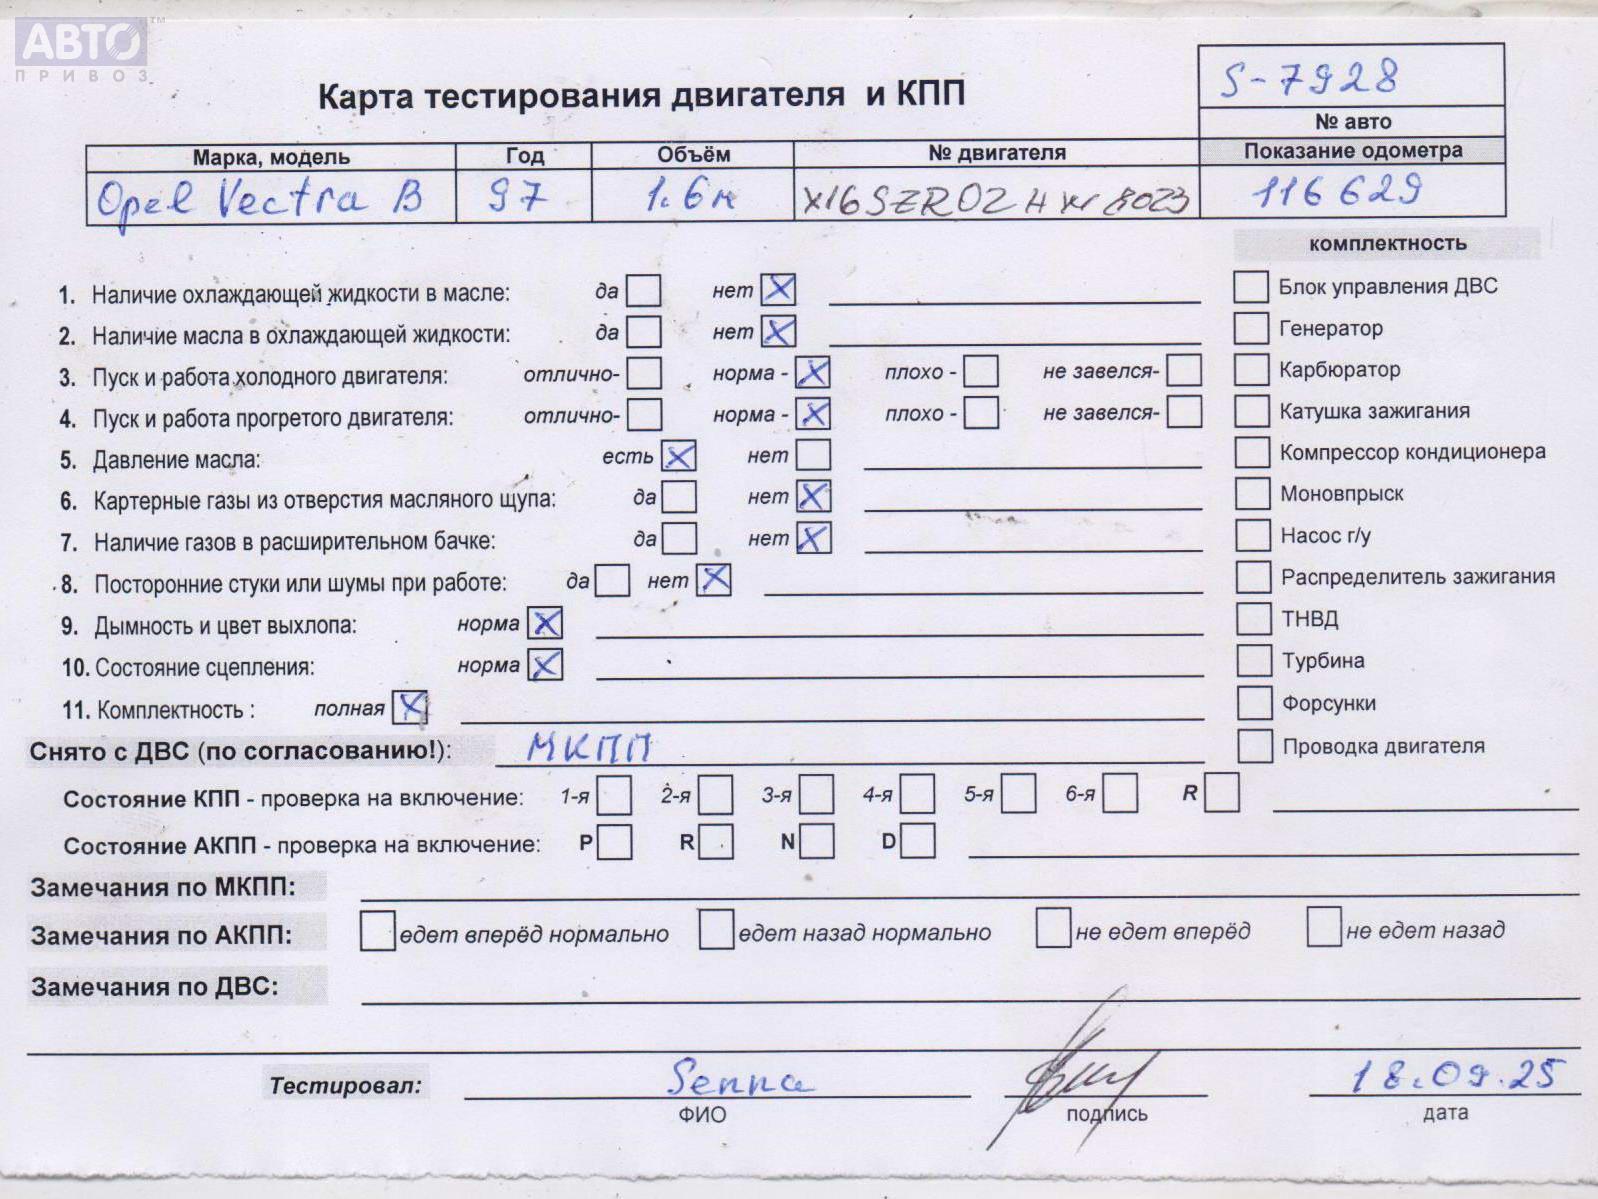 АВТО™
ПРИВОЗ
S-7928
Карта тестирования двигателя и КПП
№ авто
Марка, модель Год Объём № двигателя Показание одометра
Opel Vectra B 97 1.6и X16SZR02 116629
комплектность
1. Наличие охлаждающей жидкости в масле: да нет
Блок управления ДВС
2. Наличие масла в охлаждающей жидкости: да нет
Генератор
3. Пуск и работа холодного двигателя: отлично- норма - плохо - не завелся-
Карбюратор
4. Пуск и работа прогретого двигателя: отлично- норма - плохо - не завелся-
Катушка зажигания
5. Давление масла: есть нет
Компрессор кондиционера
6. Картерные газы из отверстия масляного щупа: да нет
Моновпрыск
7. Наличие газов в расширительном бачке: да нет
Насос г/у
8. Посторонние стуки или шумы при работе: да нет
Распределитель зажигания
9. Дымность и цвет выхлопа: норма
ТНВД
10. Состояние сцепления: норма
Турбина
11. Комплектность : полная
Форсунки
Снято с ДВС (по согласованию!): МКПП
Проводка двигателя
Состояние КПП - проверка на включение: 1-я 2-я 3-я 4-я 5-я 6-я R
Состояние АКПП - проверка на включение: P R N D
Замечания по МКПП:
Замечания по АКПП: едет вперёд нормально едет назад нормально не едет вперёд не едет назад
Замечания по ДВС:
Тестировал: Senna 18.09.25
ФИО подпись дата